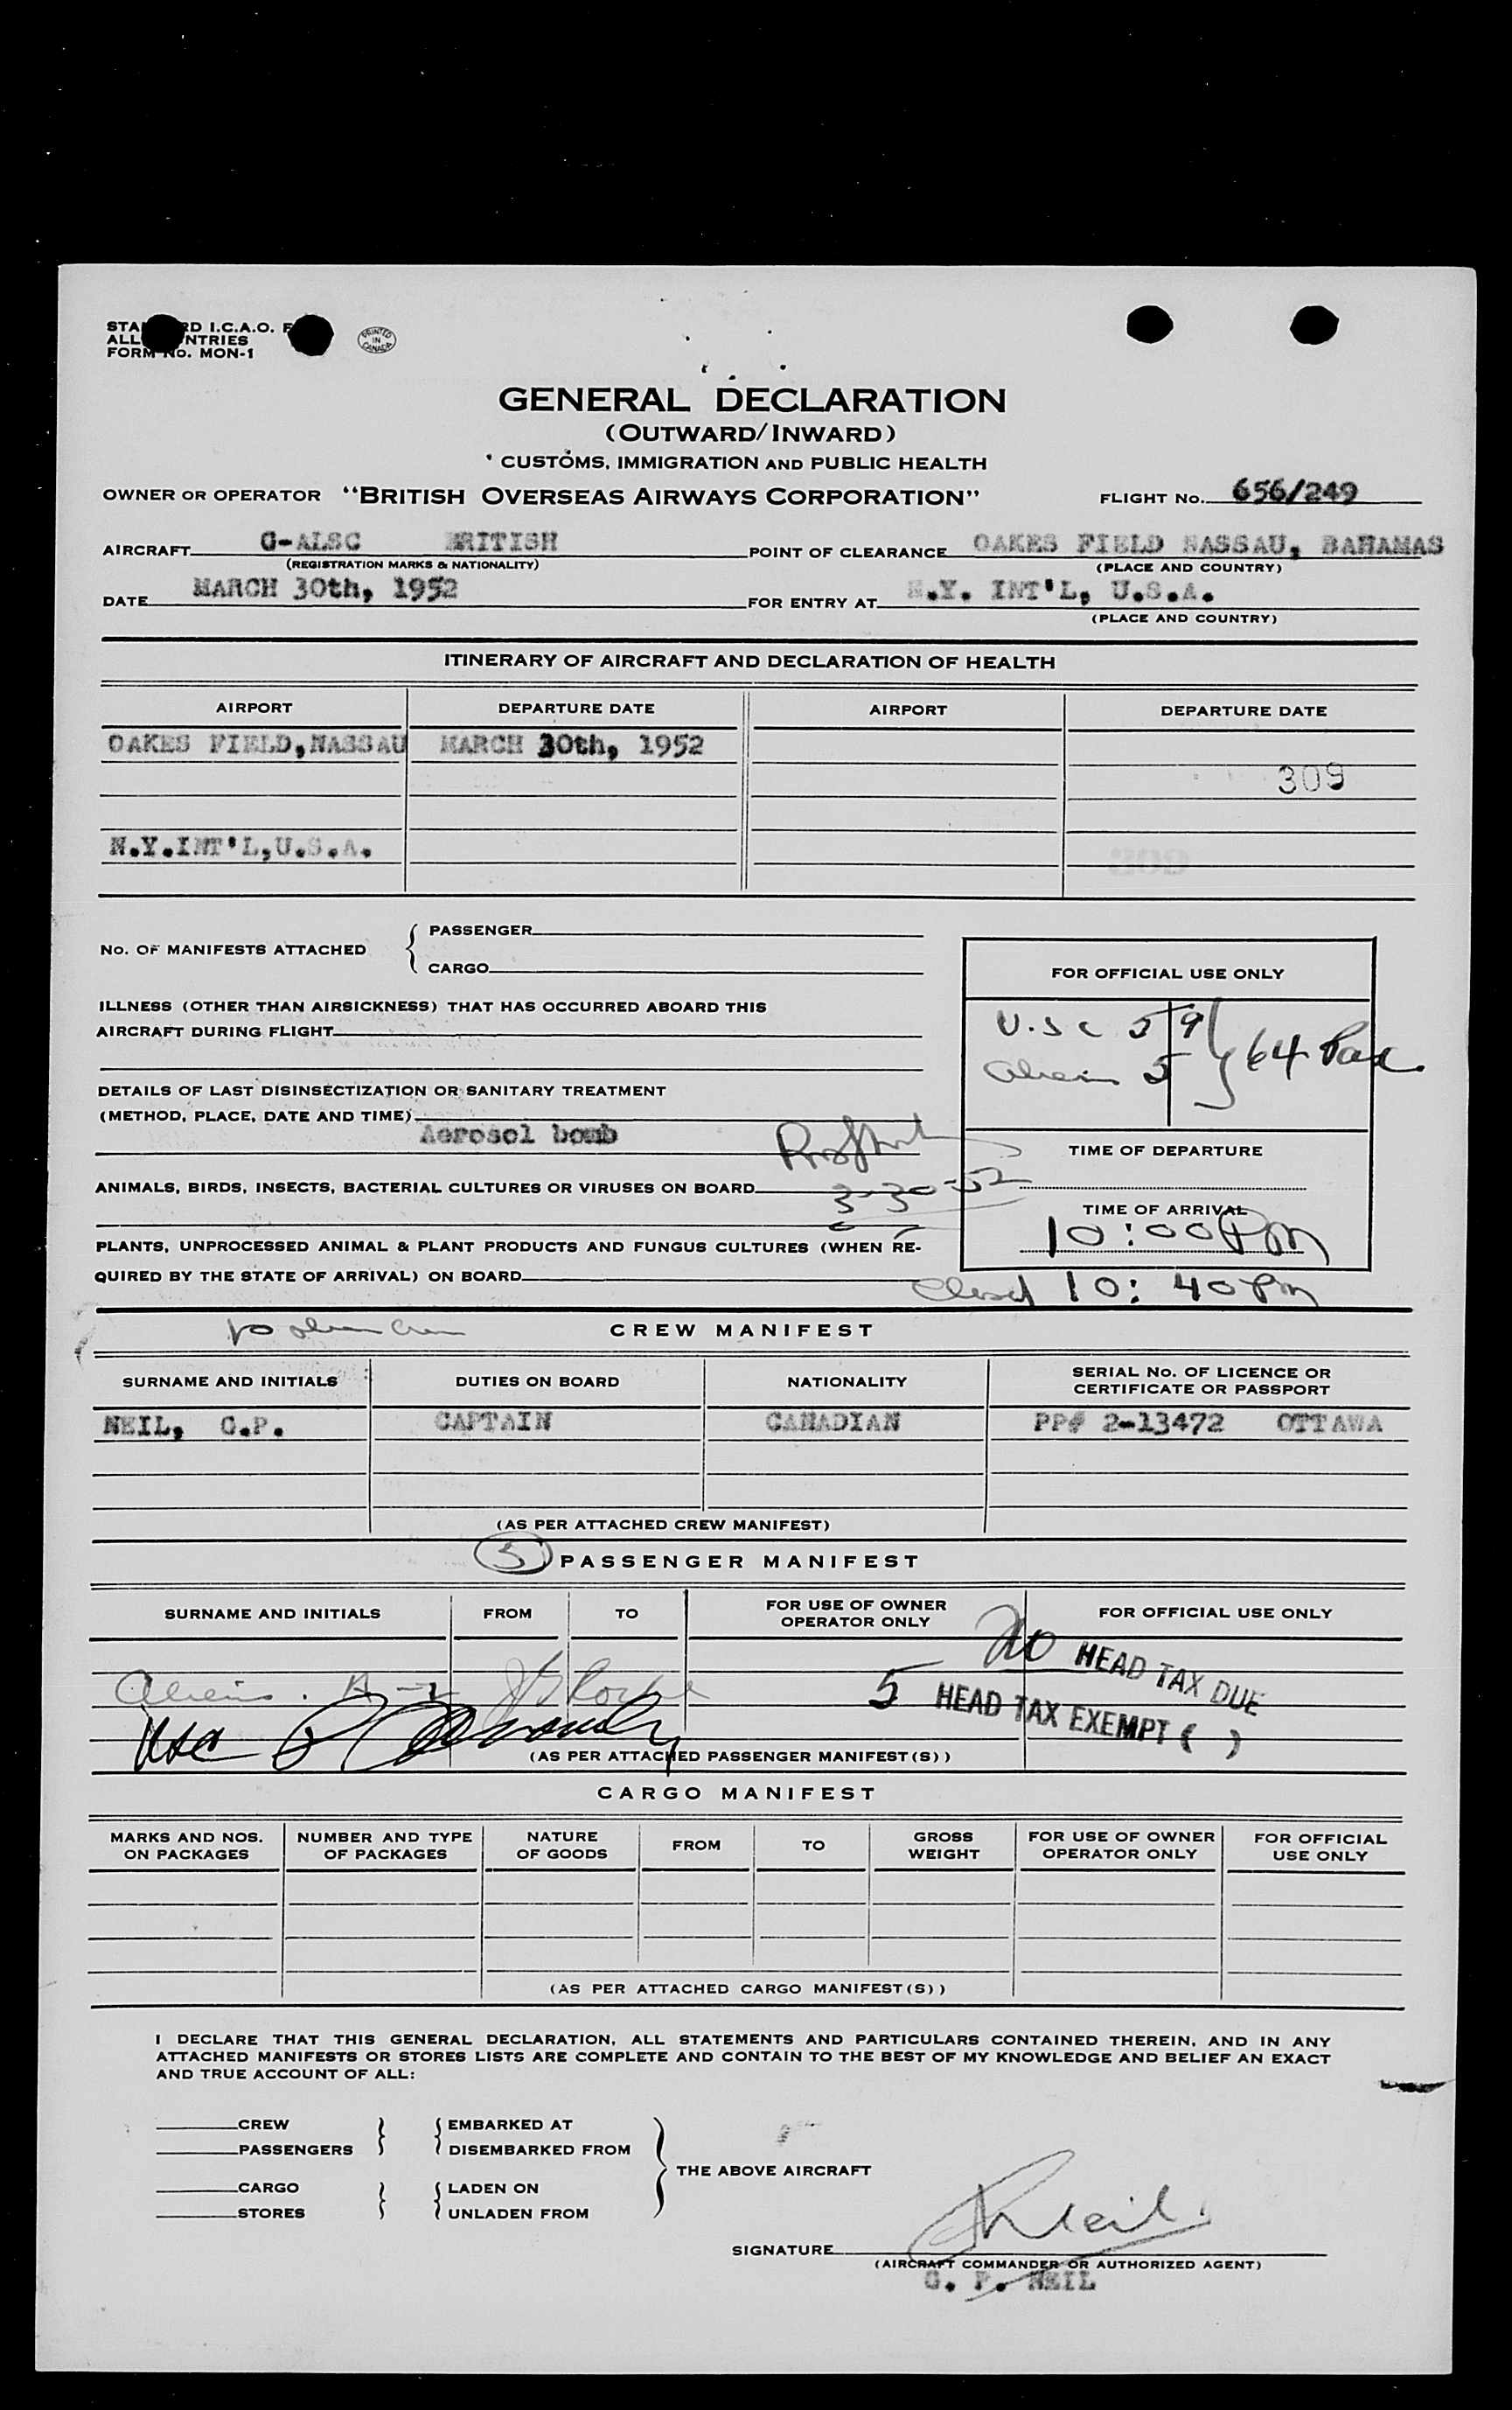 STA RD I.C.A.O. F
ALL NTRIES
FORM No. MON-1
PRINTED IN CANADA
GENERAL DECLARATION
(OUTWARD/INWARD)
CUSTOMS, IMMIGRATION AND PUBLIC HEALTH
OWNER OR OPERATOR "BRITISH OVERSEAS AIRWAYS CORPORATION" FLIGHT No. 656/249
AIRCRAFT G-ALSC BRITISH POINT OF CLEARANCE OAKES FIELD NASSAU, BAHAMAS
(REGISTRATION MARKS & NATIONALITY) (PLACE AND COUNTRY)
DATE MARCH 30th, 1952 FOR ENTRY AT N.Y. INT'L, U.S.A.
(PLACE AND COUNTRY)
ITINERARY OF AIRCRAFT AND DECLARATION OF HEALTH
AIRPORT DEPARTURE DATE AIRPORT DEPARTURE DATE
OAKES FIELD,NASSAU MARCH 30th, 1952
309
N.Y.INT'L,U.S.A.
No. OF MANIFESTS ATTACHED { PASSENGER
CARGO
FOR OFFICIAL USE ONLY
ILLNESS (OTHER THAN AIRSICKNESS) THAT HAS OCCURRED ABOARD THIS
AIRCRAFT DURING FLIGHT
U.S.C 59
Aliens 5 } 64 Pax.
DETAILS OF LAST DISINSECTIZATION OR SANITARY TREATMENT
(METHOD, PLACE, DATE AND TIME)
Aerosol bomb
TIME OF DEPARTURE
ANIMALS, BIRDS, INSECTS, BACTERIAL CULTURES OR VIRUSES ON BOARD
3-30-52
TIME OF ARRIVAL
10:00 PM
PLANTS, UNPROCESSED ANIMAL & PLANT PRODUCTS AND FUNGUS CULTURES (WHEN RE-
QUIRED BY THE STATE OF ARRIVAL) ON BOARD
Closed 10:40 PM
CREW MANIFEST
SURNAME AND INITIALS DUTIES ON BOARD NATIONALITY SERIAL No. OF LICENCE OR
CERTIFICATE OR PASSPORT
NEIL, G.P. CAPTAIN CANADIAN PP# 2-13472 OTTAWA
(AS PER ATTACHED CREW MANIFEST)
5 PASSENGER MANIFEST
SURNAME AND INITIALS FROM TO FOR USE OF OWNER
OPERATOR ONLY FOR OFFICIAL USE ONLY
no HEAD TAX DUE
Aliens
5 HEAD TAX EXEMPT ( )
USC
(AS PER ATTACHED PASSENGER MANIFEST(S))
CARGO MANIFEST
MARKS AND NOS.
ON PACKAGES NUMBER AND TYPE
OF PACKAGES NATURE
OF GOODS FROM TO GROSS
WEIGHT FOR USE OF OWNER
OPERATOR ONLY FOR OFFICIAL
USE ONLY
(AS PER ATTACHED CARGO MANIFEST(S))
I DECLARE THAT THIS GENERAL DECLARATION, ALL STATEMENTS AND PARTICULARS CONTAINED THEREIN, AND IN ANY
ATTACHED MANIFESTS OR STORES LISTS ARE COMPLETE AND CONTAIN TO THE BEST OF MY KNOWLEDGE AND BELIEF AN EXACT
AND TRUE ACCOUNT OF ALL:
CREW EMBARKED AT
PASSENGERS DISEMBARKED FROM
THE ABOVE AIRCRAFT
CARGO LADEN ON
STORES UNLADEN FROM
SIGNATURE
(AIRCRAFT COMMANDER OR AUTHORIZED AGENT)
G. P. NEIL